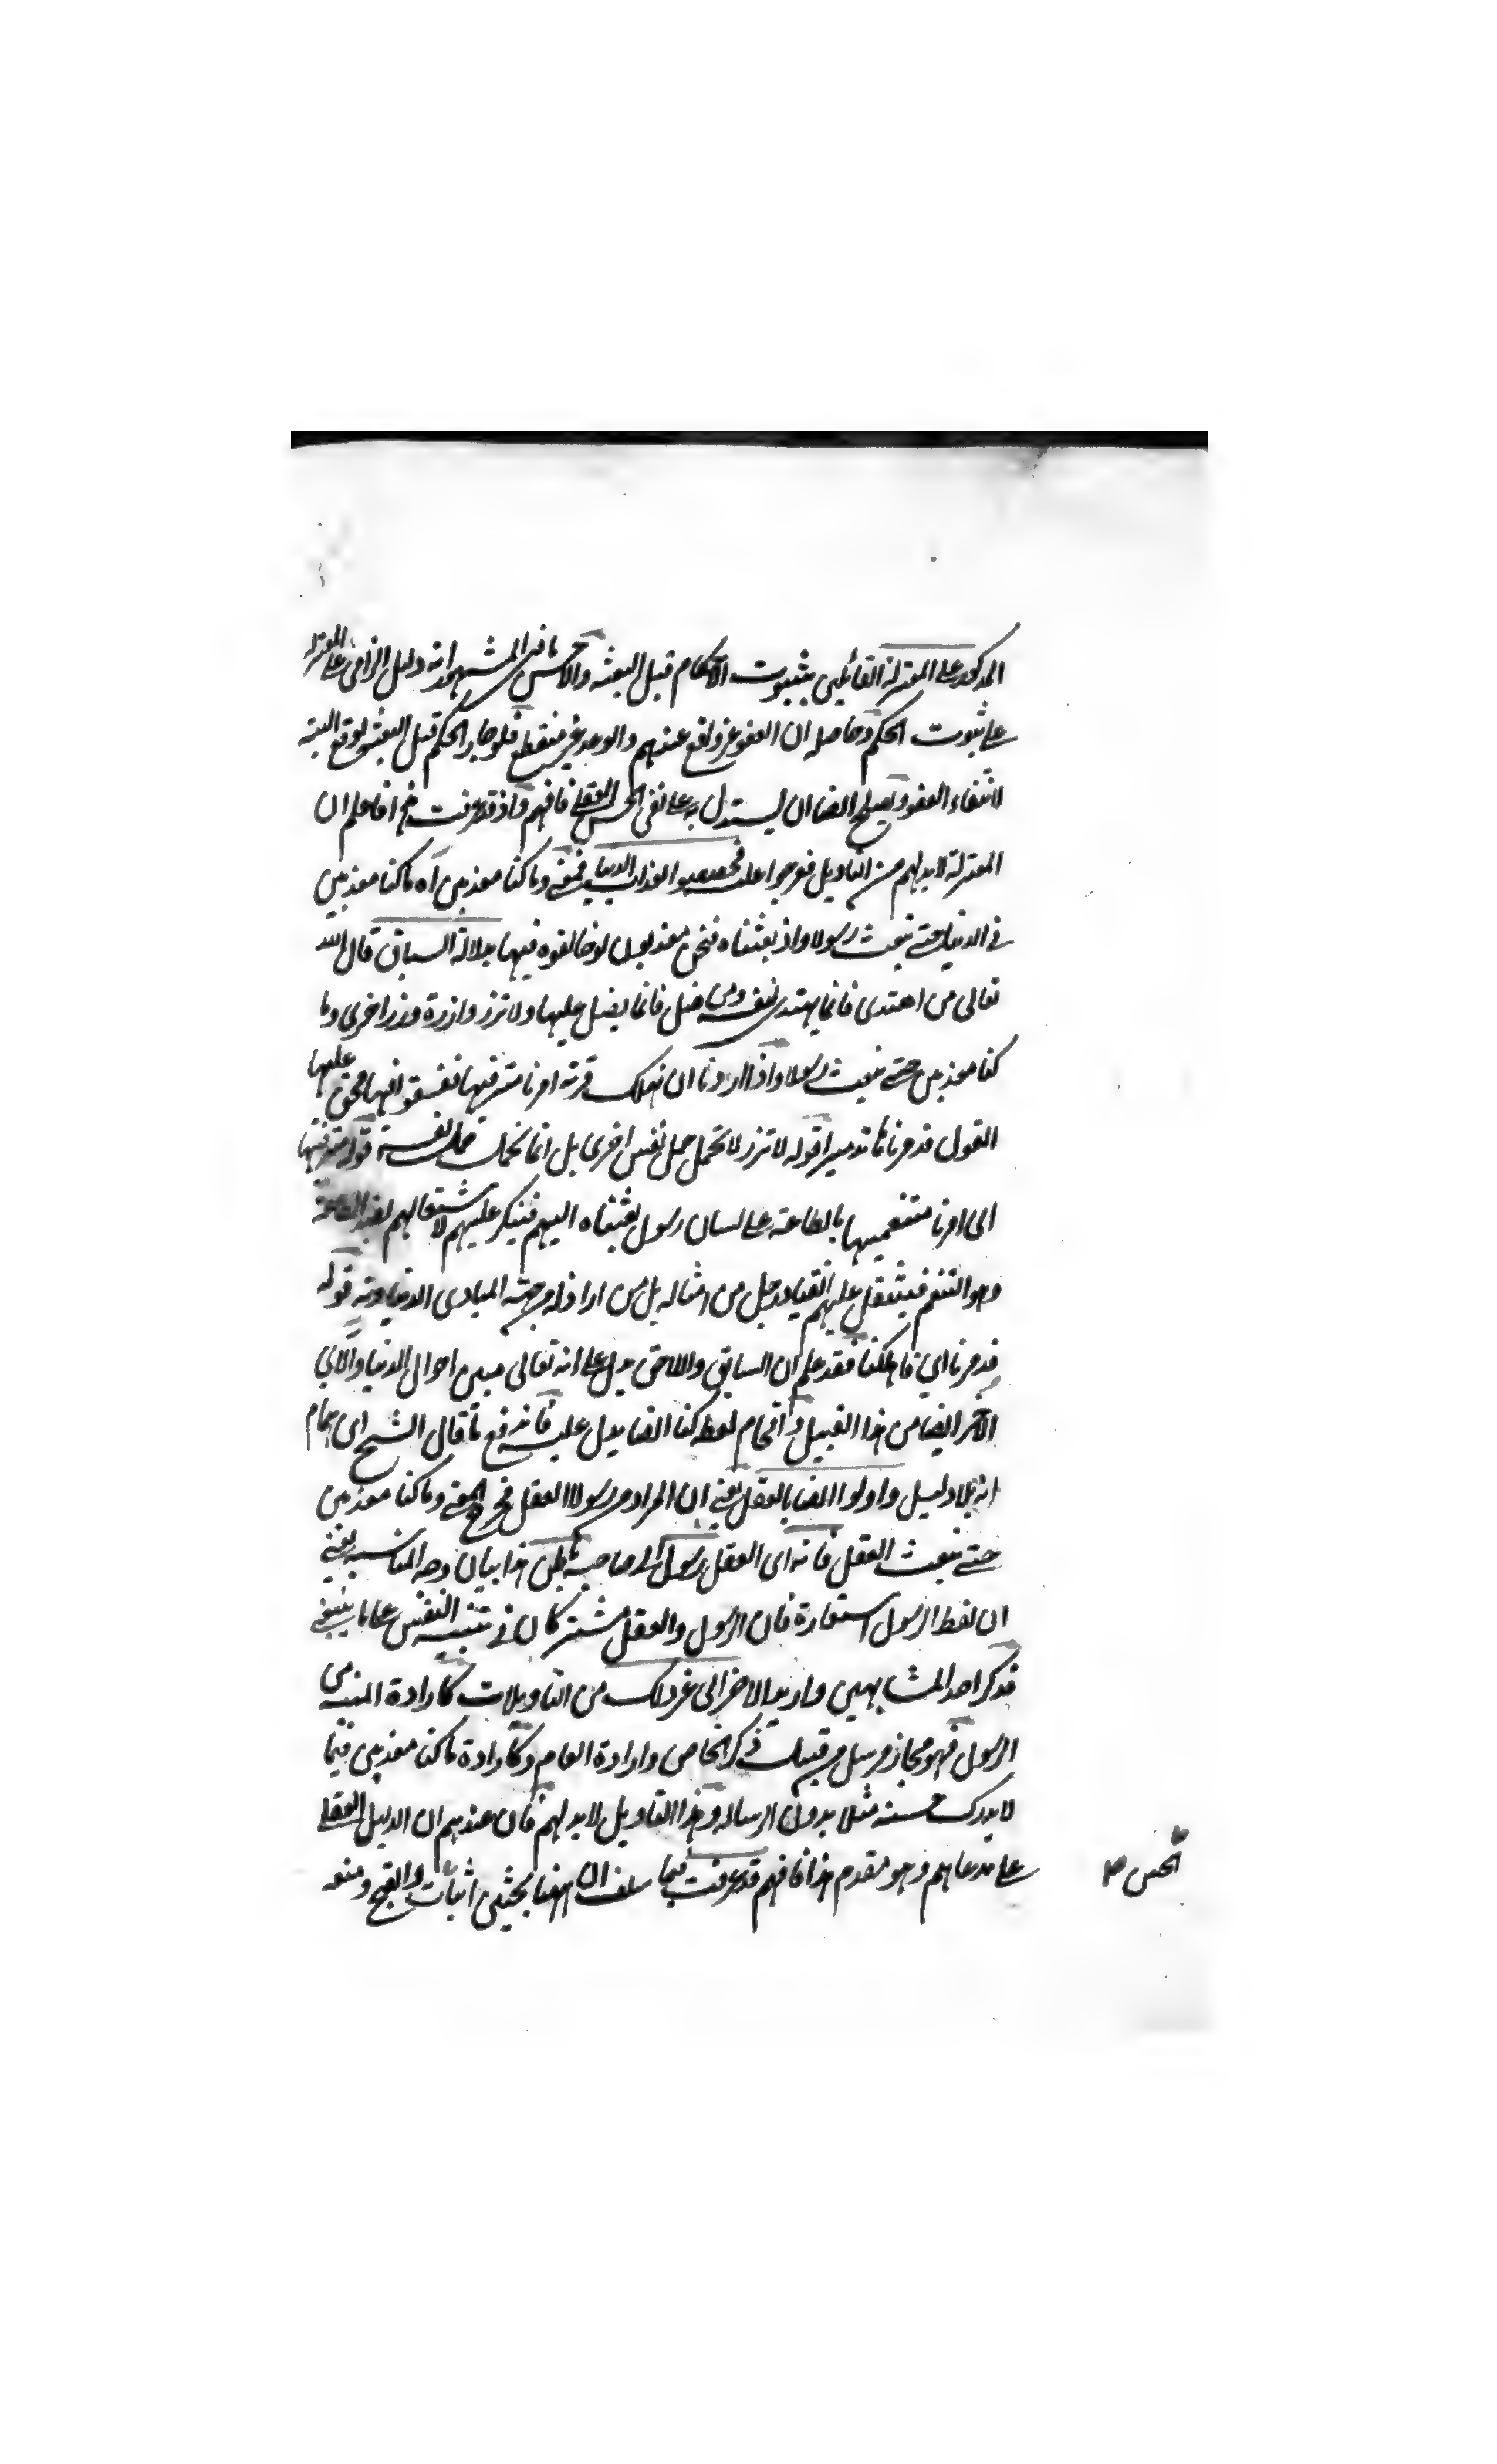 المذكور على المعتزلة القائلين بثبوت الاحكام قبل البعثة والاحسن ما في المشهور انه دليل الزامى على المعتزلة
على ثبوت الحكم وحاصله ان العفو غير واقع عندهم والوعد غير منقطع فلو جاز الحكم قبل البعثة لوقع البتة
لانتفاء العفو ويصلح ايضا ان يستدل به على نفى الحسن العقلى فافهم واذ قد عرفت هذا فاعلم ان
المعتزلة لا بد لهم من التاويل فخصصوا العذاب الدنيا فمعنى وما كنا معذبين اه ما كنا معذبين
فى الدنيا حتى نبعث رسولا واذ بعثناه فنحن معذبون لو خالفوه فيها بدلالة السياق قال الله
تعالى من اهتدى فانما يهتدى لنفسه ومن ضل فانما يضل عليها ولا تزر وازرة وزر اخرى وما
كنا معذبين حتى نبعث رسولا واذا اردنا ان نهلك قرية امرنا مترفيها ففسقوا فيها فحق عليها
القول فدمرناها تدميرا قوله لا تزر لا تحمل حمل نفس اخرى بل انما تحمل حمل نفسه قوله مترفيها
اى امرنا متنعميها بالطاعة على لسان رسول بعثناه اليهم فينكر عليهم لاشتغالهم بضد الطاعة
وهو التنعم فيثقل عليهم انقياد رجل من امثاله بل من اراذله من جهة المبادى الدنياوية قوله
فدمرنا اي فاهلكنا فقد علم ان السابق واللاحق يدل على انه تعالى مبين احوال الدنيا والآي
الآخر ايضا من هذا القبيل واقحام لفظ كنا ايضا يدل عليه فاندفع ما قال الشيخ ابن همام
انه بلا دليل واولوا ايضا بالعقل يعنى ان المراد من رسولا العقل فمرجع المعنى وما كنا معذبين
حتى نبعث العقل فانه اى العقل رسول الى صاحبه باطن هذا بيان وجه المناسبة يعنى
ان لفظ الرسول استعارة فان الرسول والعقل مشتركان فى تنبيه النفس على ما ينبغى
فذكر احد المشابهين واريد الاخر الى غير ذلك من التاويلات كارادة المنبه من
الرسول فهو مجاز مرسل من قبيل ذكر الخاص وارادة العام وكارادة ما كنا معذبين فيما
لا يدرك حسنه مثلا بدون الرسالة وهذا التاويل لا بد لهم فان عندهم ان الدليل العقلى
على مدعاهم وهو مقدم هذا فافهم قد عرفت فيما سلف ان ههنا بحثين اثبات والقبح ومنعه
الحسن صح